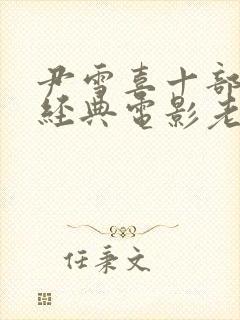 尹雪喜十部
經典電影老
任秉文